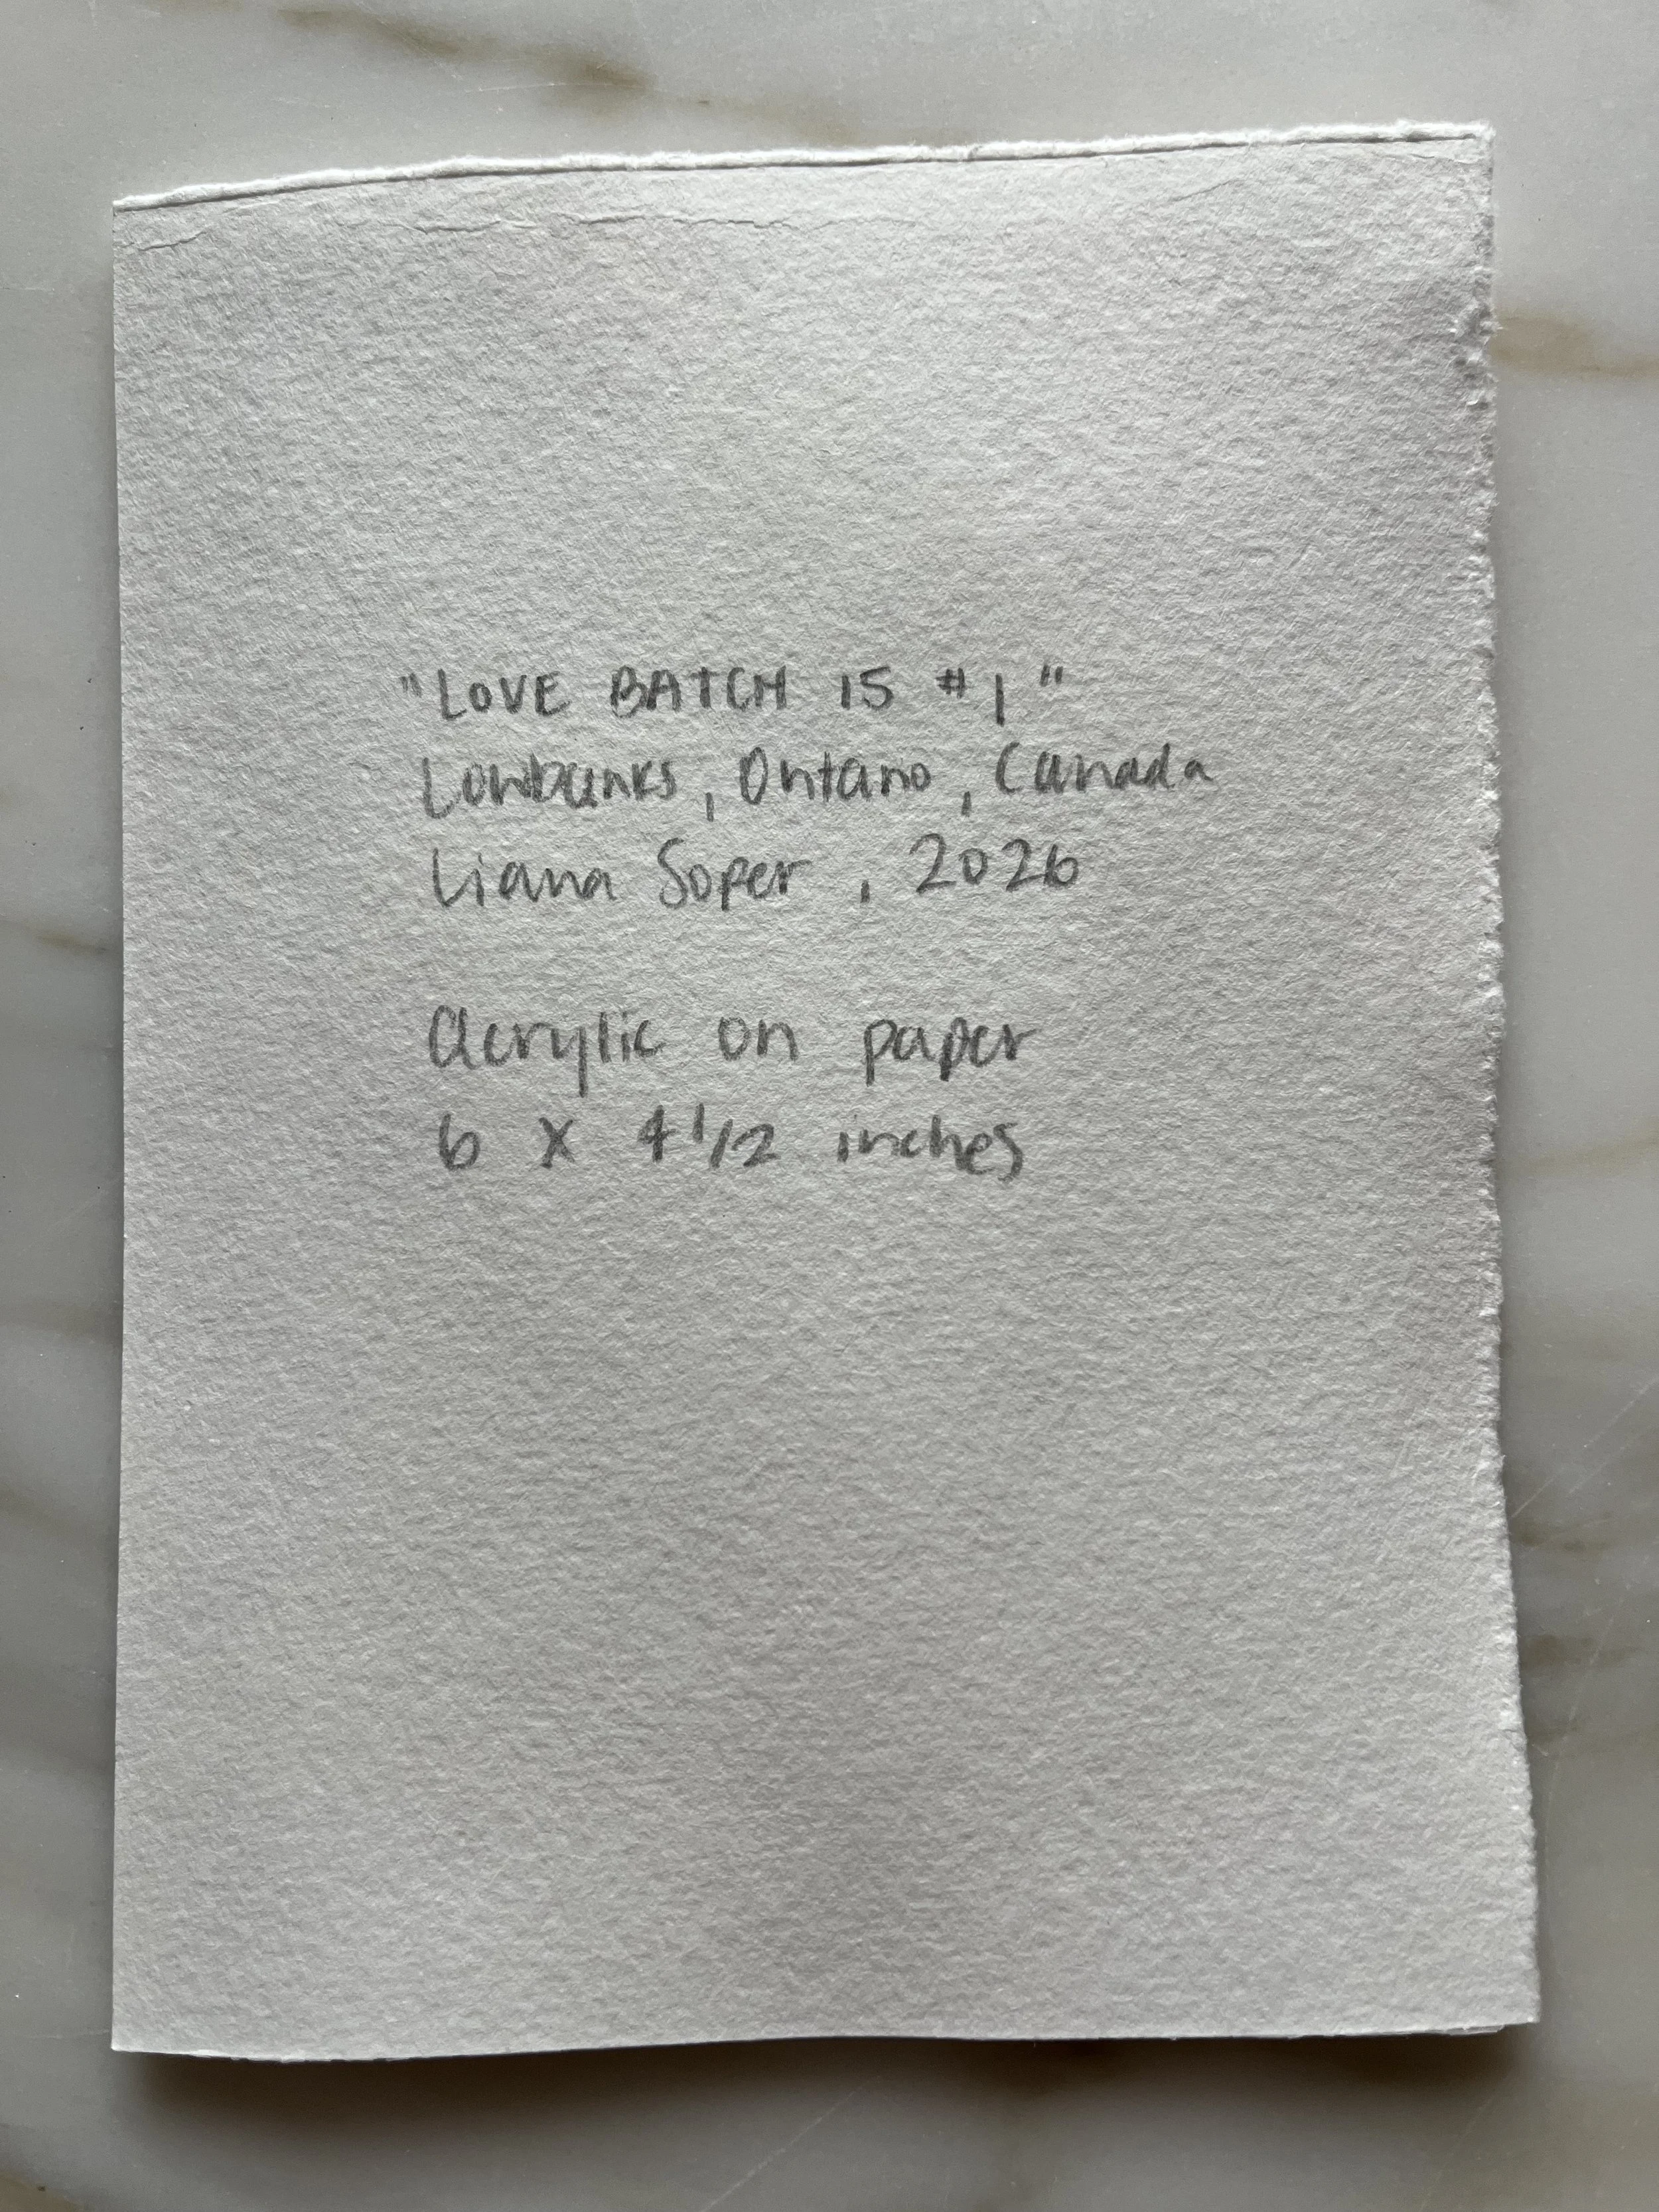 "LOVE BATCH 15 #1"
Lowbanks, Ontario, Canada
Liana Soper, 2026
acrylic on paper
6 x 4 1/2 inches